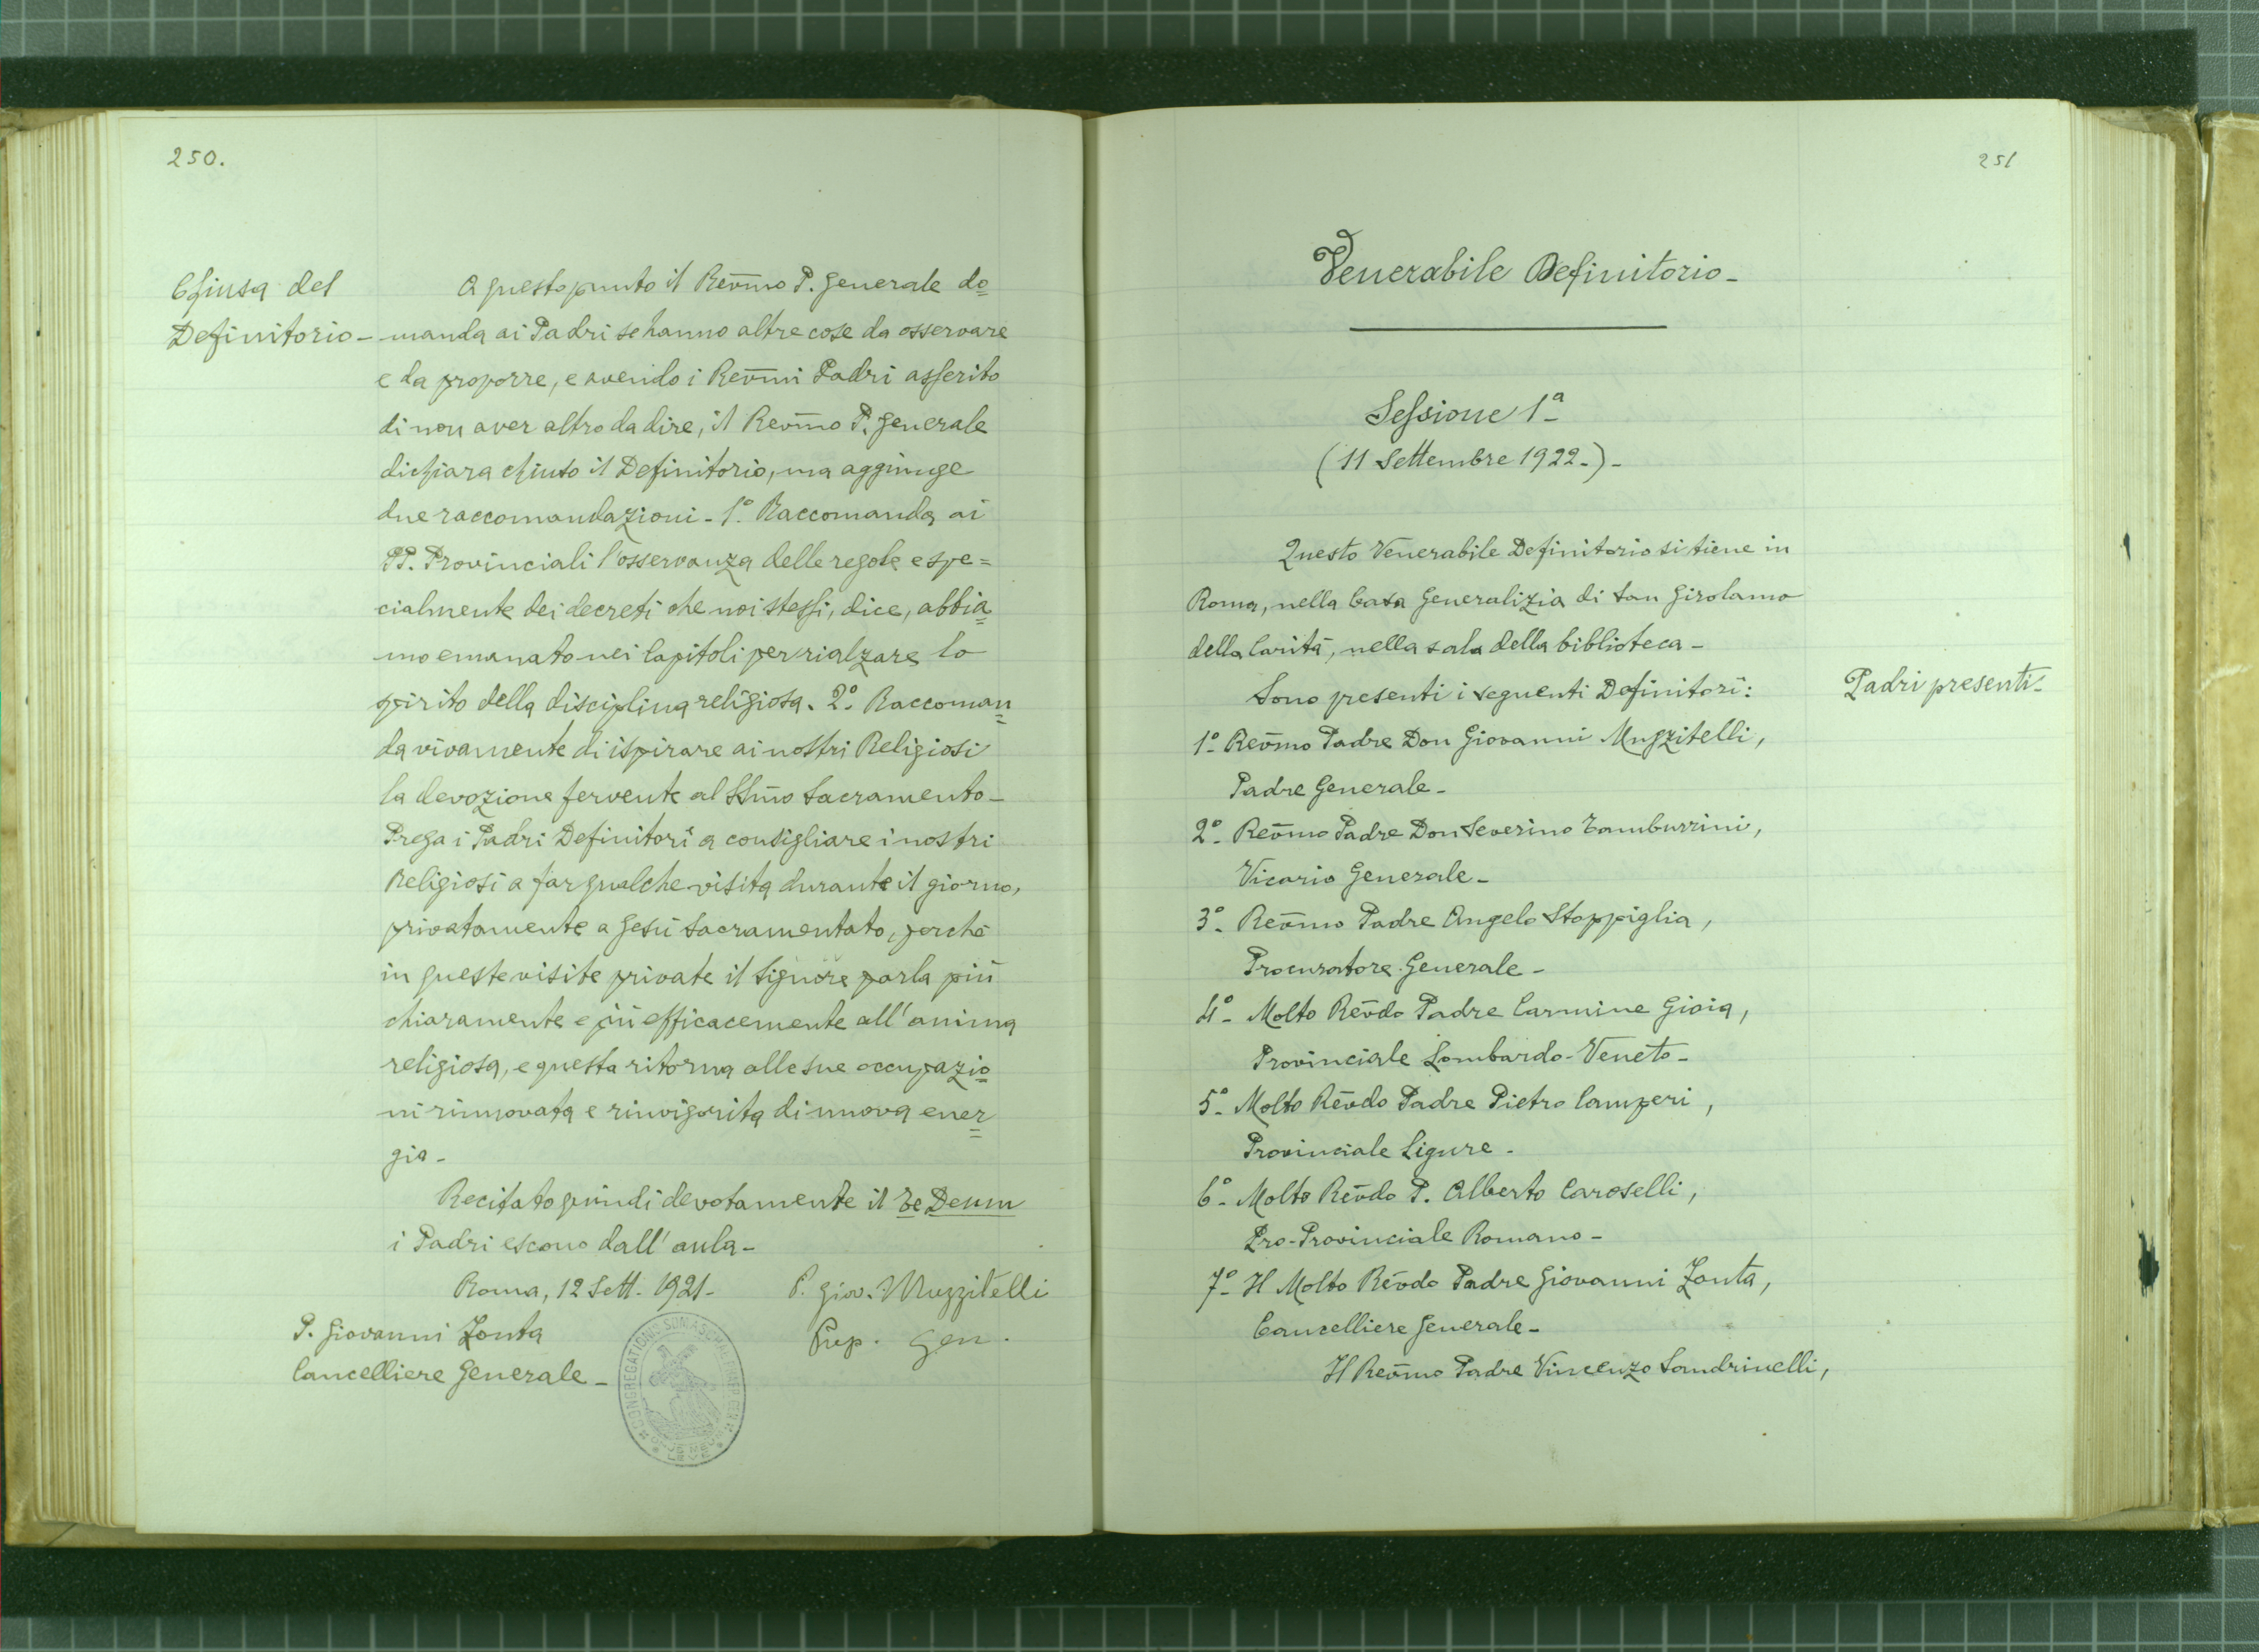 250.
Chiusa del
Definitorio-
A questo punto il Rev̄mo P. Generale do=
manda ai Padri se hanno altre cose da osservare
e da proporre, e avendo i Rev̄mi Padri asserito
di non aver altro da dire, il Rev̄mo P. Generale
dichiara chiuso il Definitorio, ma aggiunge
due raccomandazioni - 1º. Raccomanda ai
PP. Provinciali l'osservanza delle regole e spe=
cialmente dei decreti che noi stessi, dice, abbia=
mo emanato nei Capitoli per rialzare lo
spirito della disciplina religiosa. 2º. Raccoman=
da vivamente di ispirare ai nostri Religiosi
la devozione fervente al SSm̄o Sacramento-
Prega i Padri Definitori a consigliare i nostri
Religiosi a far qualche visita durante il giorno,
privatamente a Gesù Sacramentato, perchè
in queste visite private il Signore parla più
chiaramente e più efficacemente all'anima
religiosa, e questa ritorna alle sue occupazio=
ni rinnovata e rinvigorita di nuova ener=
gia-
Recitato quindi devotamente il Te Deum
i Padri escono dall'aula-
Roma, 12 Sett. 1921-
P. Giov. Muzzitelli
Prep. Gen.
P. Giovanni Zonta
Cancelliere Generale-
251
Venerabile Definitorio-
Sessione 1ª
(11 Settembre 1922-)-
Questo Venerabile Definitorio si tiene in
Roma, nella Casa Generalizia di San Girolamo
della Carità, nella sala della biblioteca-
Sono presenti i seguenti Definitori:
Padri presenti-
1º- Rev̄mo Padre Don Giovanni Muzzitelli,
Padre Generale-
2º- Rev̄mo Padre Don Severino Tamburrini,
Vicario Generale-
3º- Rev̄mo Padre Angelo Stoppiglia,
Procuratore Generale-
4º- Molto Rev̄do Padre Carmine Gioia,
Provinciale Lombardo-Veneto-
5º- Molto Rev̄do Padre Pietro Camperi,
Provinciale Ligure-
6º- Molto Rev̄do P. Alberto Caroselli,
Pro-Provinciale Romano-
7º- Il Molto Rev̄do Padre Giovanni Zonta,
Cancelliere Generale-
Il Rev̄mo Padre Vincenzo Sandrinelli,